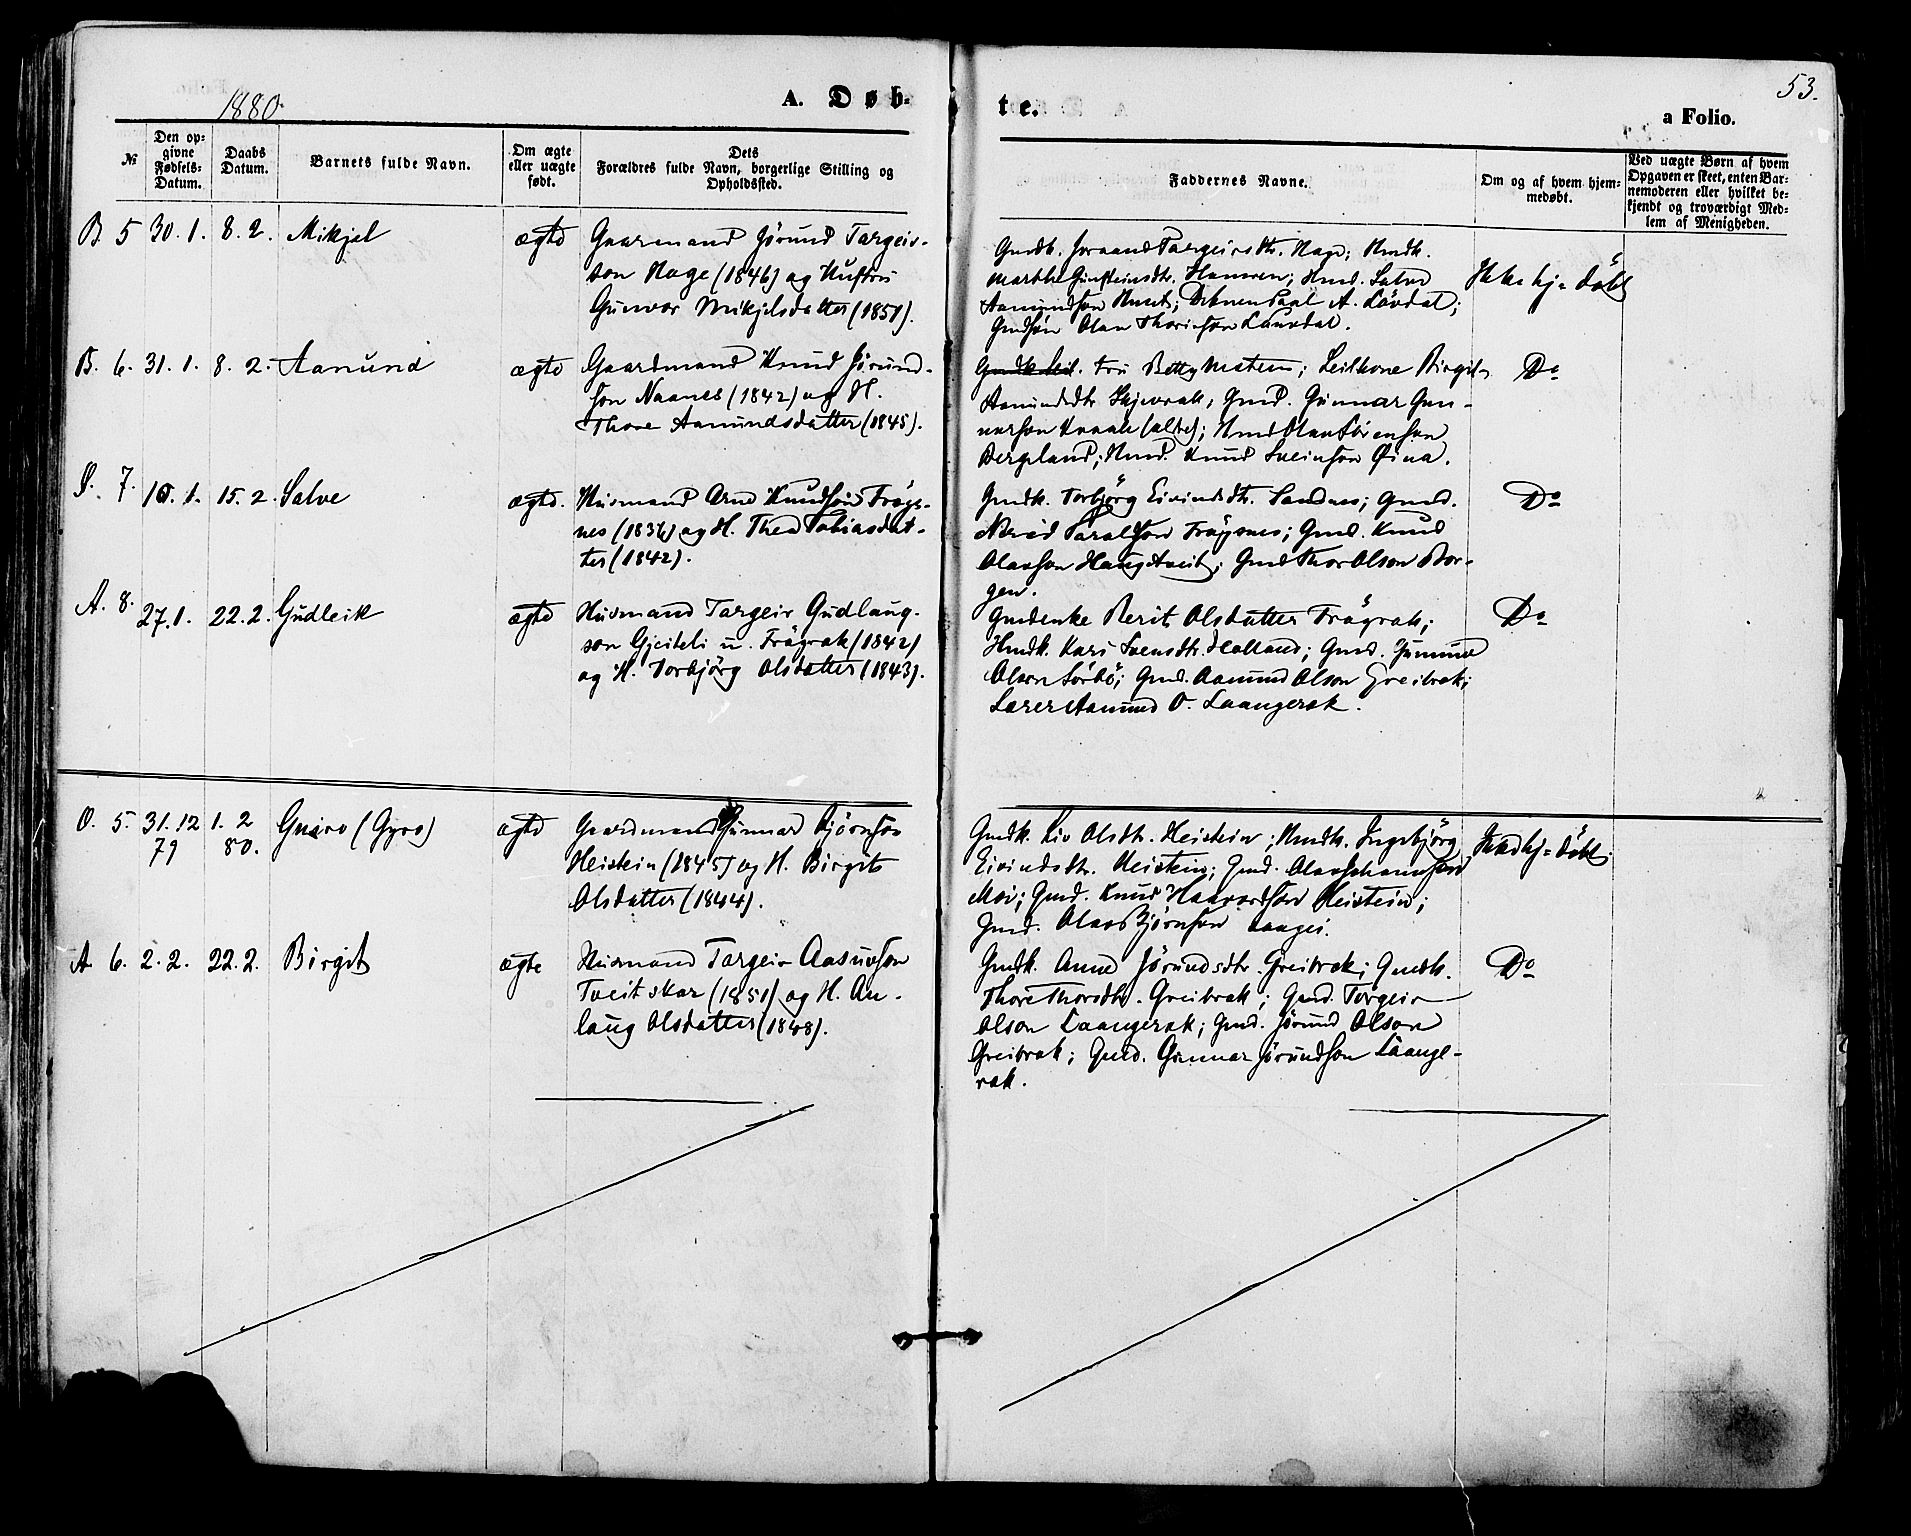 53.
1880.
A. Døb-
te.
a Folio.
№
Den op-
givne
Fødsels-
Datum.
Daabs
Datum.
Barnets fulde Navn.
Om ægte
eller uægte
født.
Dets
Forældres fulde Navn, borgerlige Stilling og
Opholdssted.
Faddernes Navne.
Om og af hvem hjem-
medøbt.
Ved uægte Børn af hvem
Opgaven er skeet, enten Bar-
nemoderen eller hvilket be-
kjendt og troværdigt Med-
lem af Menigheden.
B. 5 30. 1. 8. 2. Mikjal ægte
Gaarmand Jörund Targeir-
son Hage (1846) og Hustru
Gunvor Mikjelsdatter (1851).
Gmdk. Joraand Targeirsdtr. Hage; Hmdk.
Marthe Gunsteinsdtr. Hamren; Hmd. Salve
Aamundson; A. Lövdal;
Gmdsön Olav Thorison Laavdal.
Ikke hj=döbt
B. 6. 31. 1. 8. 2. Aanund ægte
Gaardmand Knud Jörund-
son Naanes (1842) og H.
Thore Aanundsdatter (1845).
Fru Betty; Leilkone Birgit
Aanundsdtr; Gmd. Gunnar Gun-
narson; Hmd Olav Sörenson
Bergeland; Hmd. Knud Sveinson Øina.
Do
S. 7. 10. 1. 15. 2. Salve ægte.
Husmand Arne Knudson Frøys-
nes (1836) og H. Thea Tobiasdat-
ter (1842).
Gmdk. Torbjörg Eivindsdtr. Sandnes; Gmd.
Taraldson Fröysnes; Gmd. Knud
Olavson Haugetveit; Gmd Thor Olson Bor-
gen.
Do
A. 8. 27. 1. 22. 2. Gudleik ægte
Husmand Targeir Gudlaug-
son Gjeiteli u. Frögrak (1842)
og H. Torbjörg Olsdatter (1843).
Gmdenke Berit Olsdatter Frøgrak;
Hmdk. Kari Svensdtr. Helland; Gmd. Gunnund
Olson Sörbö; Gmd. Aanund Olson Greibrok;
Lærer Aanund O. Laangerak.
Do
O. 5. 31. 12 1. 2 Guäro (Gyro) ægte
79 80.
Gaardmand Gunnar Bjørnson
Heistein (1845) og H. Birgit
Olsdatter (1844).
Gmdk. Liv Olsdtr. Heistein; Hmdk. Ingebjörg
Eivindsdtr. Heistein; Gmd. Olav
Moi; Gmd. Knud Haavardson Heistein;
Gmd. Olav Bjørnson Langei.
Ikke hj=döbt.
A. 6. 2. 2. 22. 2. Birgit ægte
Husmand Targeir Aasuvson
Tveitskar (1851) og H. An-
laug Olsdatter (1848).
Gmdk. Anne Jörundsdtr. Greibrok; Gmdk.
Thore Thorsdtr. Greibrok; Gmd. Torgeir
Olson Laangerak; Gmd. Jörund Olson
Greibrok; Gmd. Gunnar Jörundson Laange-
rak.
Do